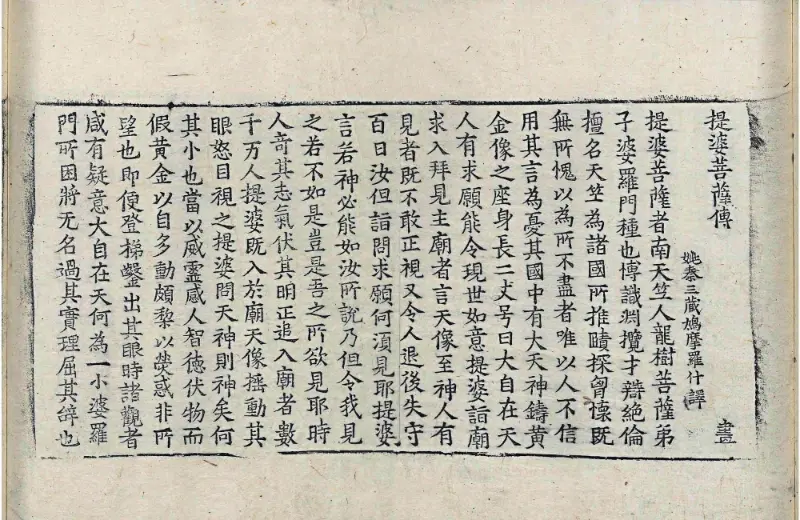 提婆菩薩傳 畫
姚秦三藏鳩摩羅什譯
提婆菩薩者南天竺人龍樹菩薩弟
子婆羅門種也博識淵攬才辯絕倫
擅名天竺為諸國所推賾探胷懷既
無所愧以為所不盡者唯以人不信
用其言為憂其國中有大天神鑄黃
金像之座身長二丈号曰大自在天
人有求願能令現世如意提婆詣廟
求入拜見主廟者言天像至神人有
見者既不敢正視又令人退後失守
百日汝但詣問求願何須見耶提婆
言若神必能如汝所說乃但令我見
之若不如是豈是吾之所欲見耶時
人奇其志氣伏其明正追入廟者數
千万人提婆既入於廟天像搖動其
眼怒目視之提婆問天神則神矣何
其小也當以威靈感人智德伏物而
假黃金以自多動頗黎以熒惑非所
望也即便登梯鑿出其眼時諸觀者
咸有疑意大自在天何為一小婆羅
門所困將无名過其實理屈其辞也